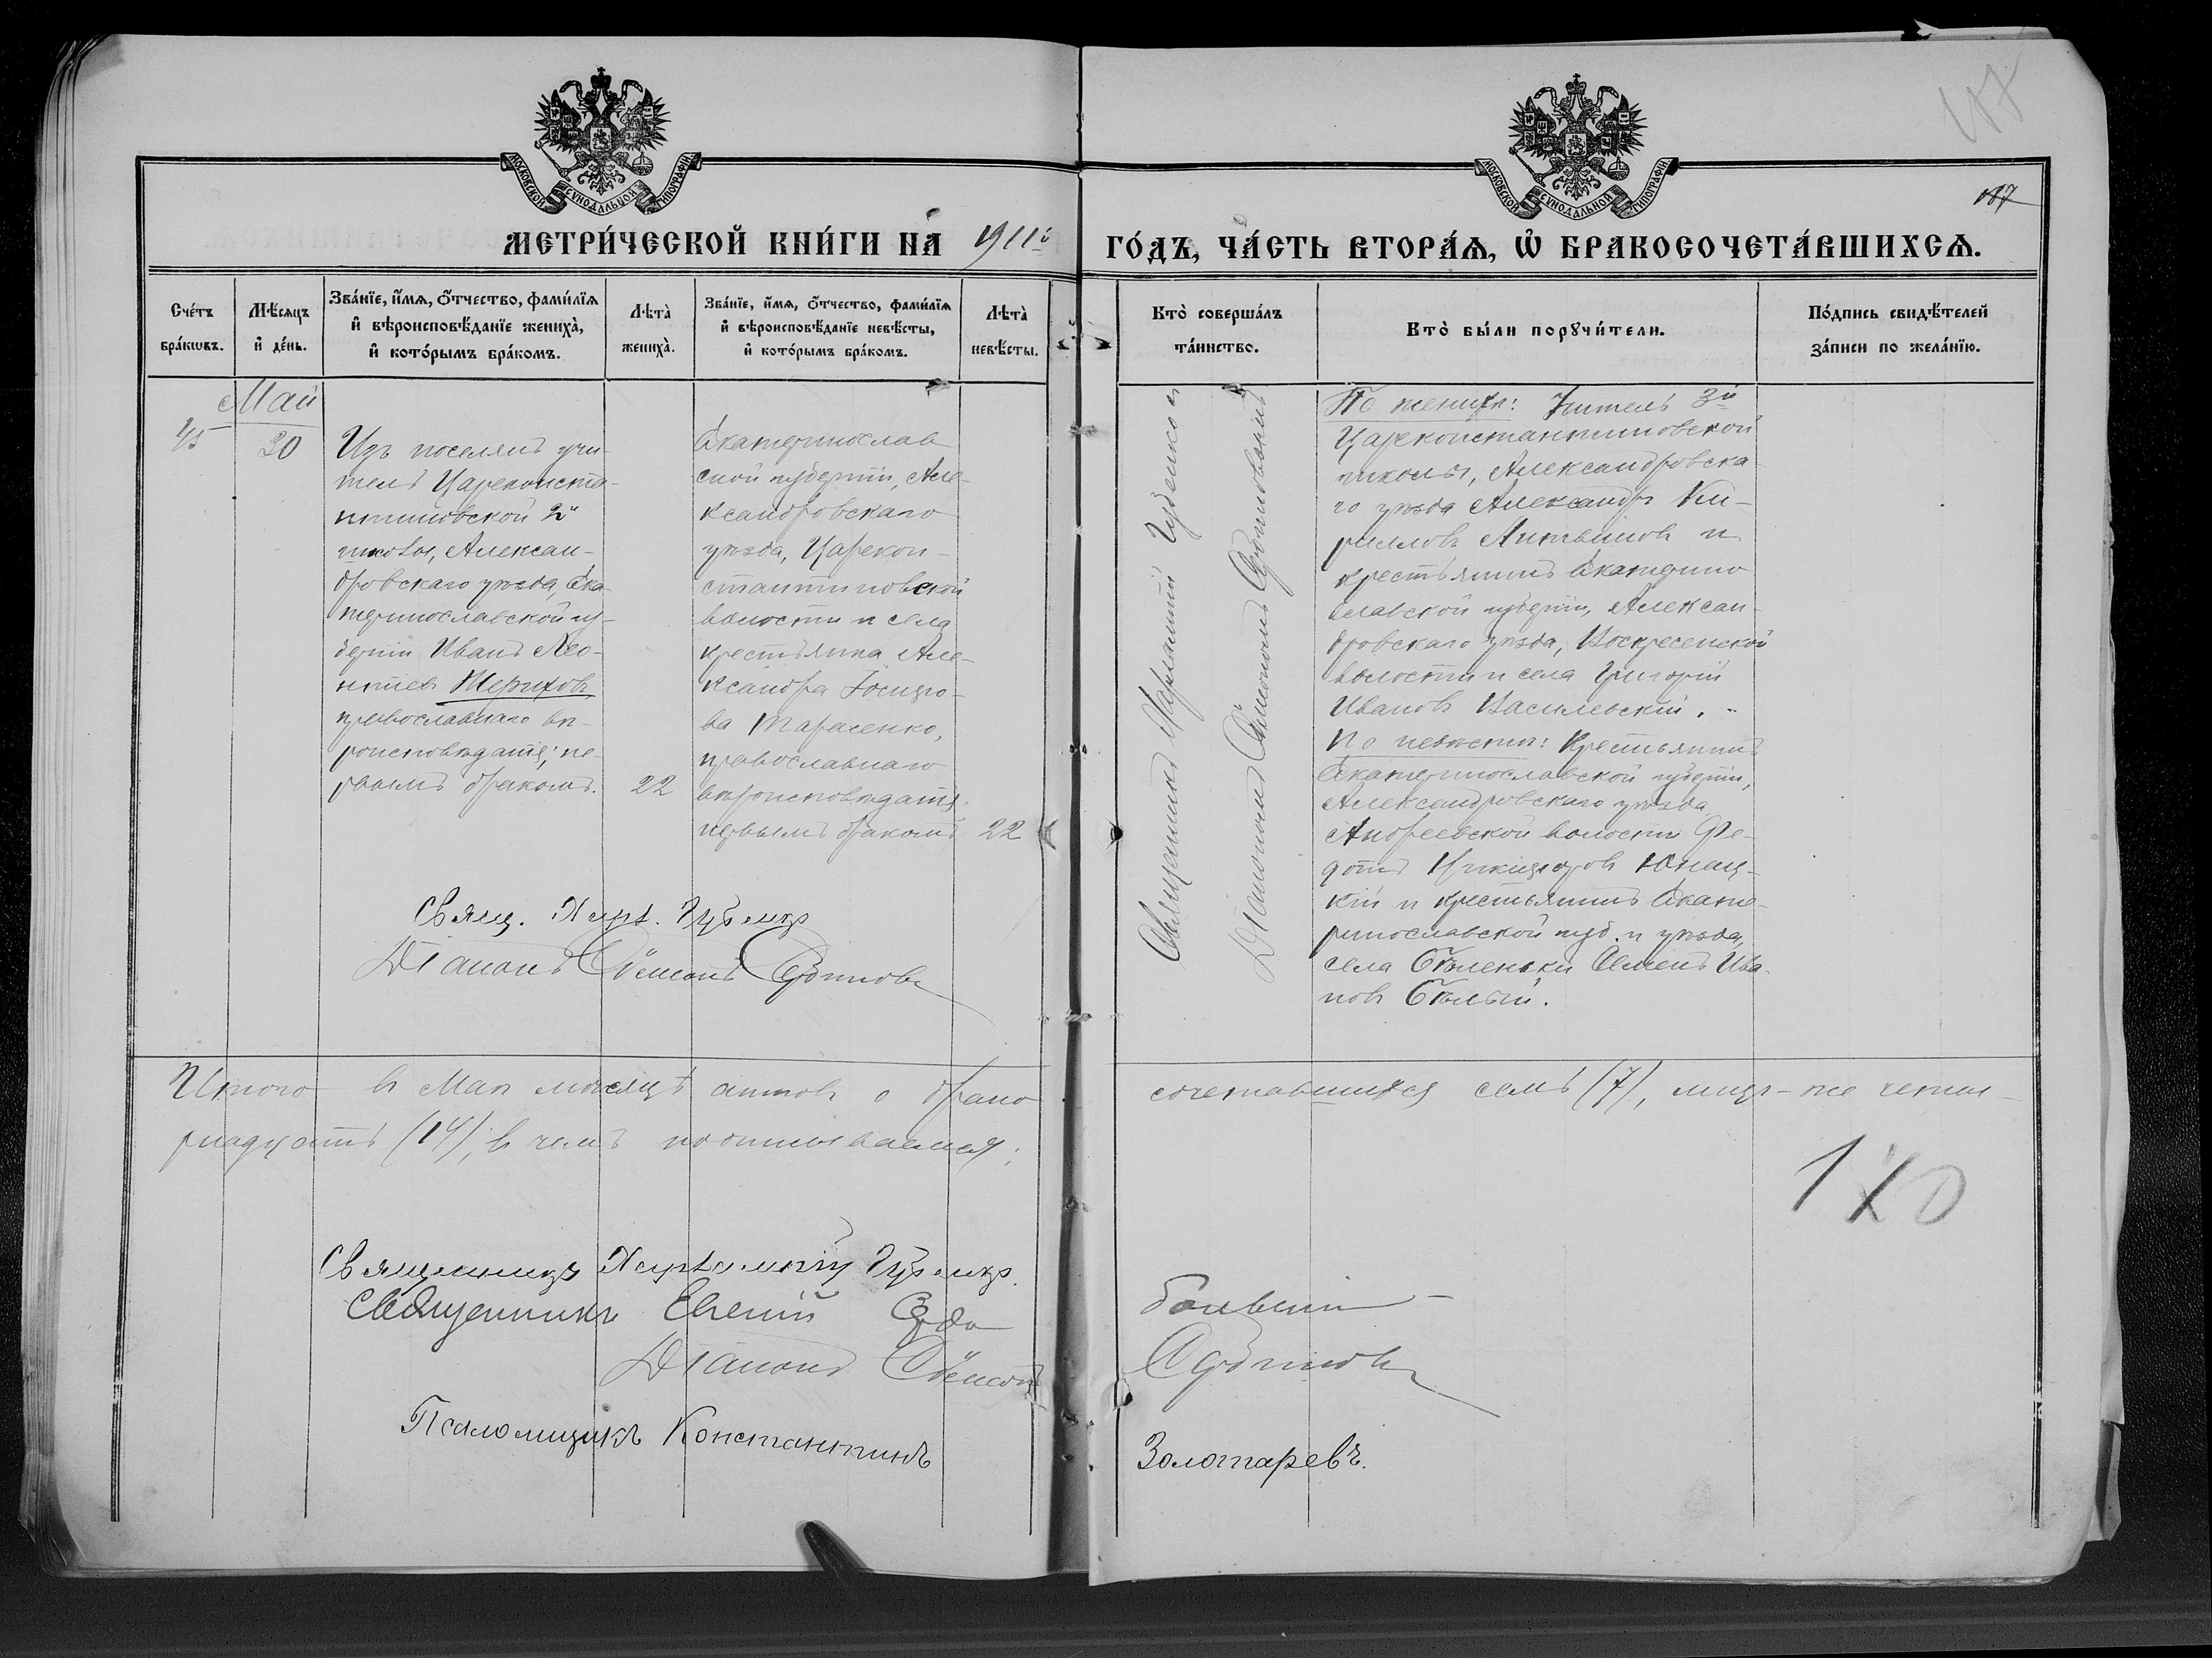 187
МОСКОВСКОЙ СѴНОДАЛЬНОЙ ТИПОГРАФІИ
МОСКОВСКОЙ СѴНОДАЛЬНОЙ ТИПОГРАФІИ
МЕТРИ́ЧЕСКОЙ КНИ́ГИ НА̀ 1911й ГО́ДЪ, ЧА́СТЬ ВТОРА́Ѧ, Ѽ БРАКОСОЧЕТА́ВШИХСѦ.
Сче́тъ бра́кѡвъ.
Мѣ́сѧцъ и҆ де́нь.
Зва́нїе, и҆́мѧ, ѻ҆́тчество, фами́лїѧ
и҆ вѣроисповѣ́данїе жениха̀,
и҆ кото́рымъ бра́комъ.
Лѣта̀ жениха̀.
Зва́нїе, и҆́мѧ, ѻ҆́тчество, фами́лїѧ
и҆ вѣроисповѣ́данїе невѣ́сты,
и҆ кото́рымъ бра́комъ.
Лѣта̀ невѣ́сты.
Кто̀ соверша́лъ та́инство.
Кто̀ бы́ли порꙋчи́тели.
По́дпись свидѣ́телей
за́писи по жела́нїю.
Май
45
30
Изъ поселянъ учи-
тель Цареконста-
нтиновской 2й
школы, Алексан-
дровскаго уѣзда, Ека-
теринославской гу-
берніи Иванъ Лео-
нтіевъ Шериховъ
православнаго вѣ-
роисповѣданія; пе-
рвымъ бракомъ.
22
Екатеринослав
ской губерніи, Але-
ксандровскаго
уѣзда, Царекон-
стантиновской
волости и села
крестьянина Але-
ксандра
ва Тарасенко,
православнаго
вѣроисповѣданія.
первымъ бракомъ
22
Священникъ Харлампій Губенко и
Діаконъ Симеонъ
По женихѣ: Учитель 3й
Цареконстантиновской
школы, Александровска
го уѣзда Александръ Ки-
рилловъ Литвиновъ и
крестьянинъ Екатерино
славской губерніи, Алексан-
дровскаго уѣзда, Воскресенской
волости и села Григорій
Ивановъ Василевскій.
По невѣстѣ: Крестьянинъ
Екатеринославской губерніи,
Александровскаго уѣзда
Андреевской волости Фе-
дотъ Никифоровъ
кій и крестьянинъ Екате-
ринославской губ. и уѣзда,
села Бѣленьки Семенъ Ива-
новъ Бѣлый.
Свящ. Харл. Губенко
Діаконъ Симеонъ
Итого въ Маѣ мѣсяцѣ актовъ о брако сочетавшихся семь (7), лицъ-же четы-
рнадцать (14), въ чемъ подписываемся:
170
Священникъ Харлампій Губенко.
Священникъ Евгеній
Діаконъ Симеонъ
Псаломщикъ Константинъ Золотаревъ.